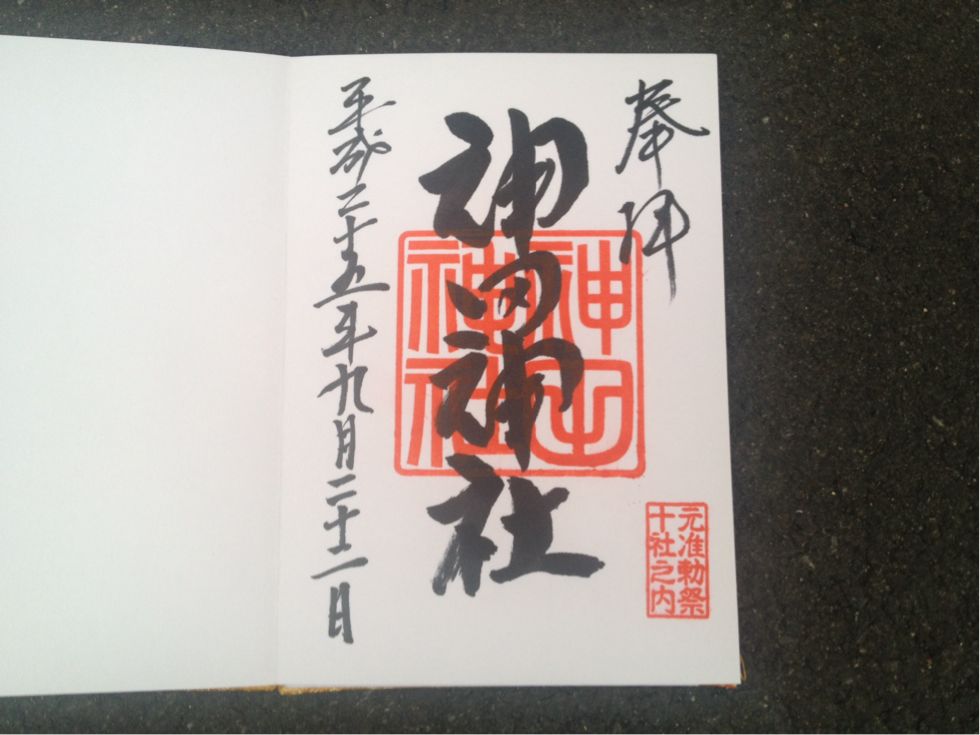 奉拝
元准勅祭
十社之内
神田神社
神田
神社
平成二十五年九月二十二日